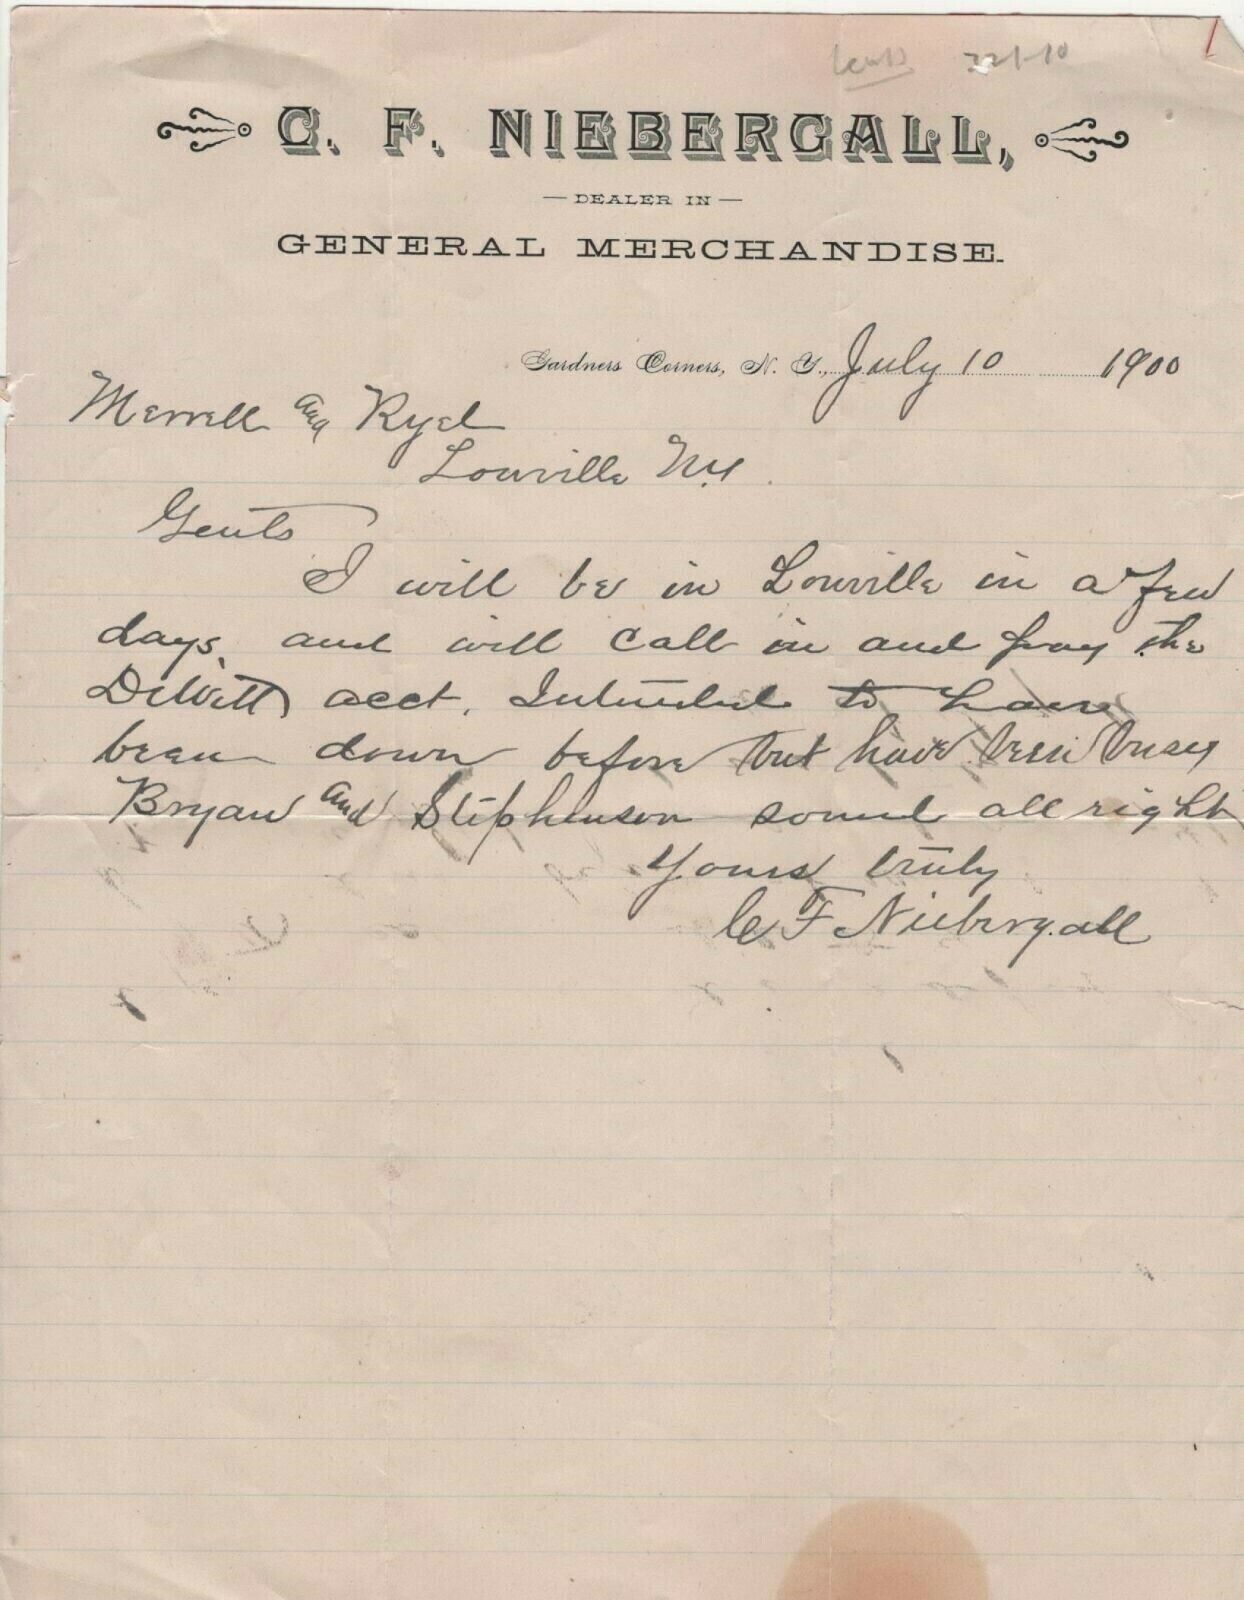 C. F. NIEBERGALL,
— DEALER IN —
GENERAL MERCHANDISE.
Gardners Corners, N. Y., July 10 1900
Merrell and Ryel
Lowville NY.
Gents
I will be in Lowville in a few
days, and will call in and pay the
DeWitt acct. Intended to have
been down before but have been busy
Bryan and Stephenson sound all right
Yours truly
C F Niebergall